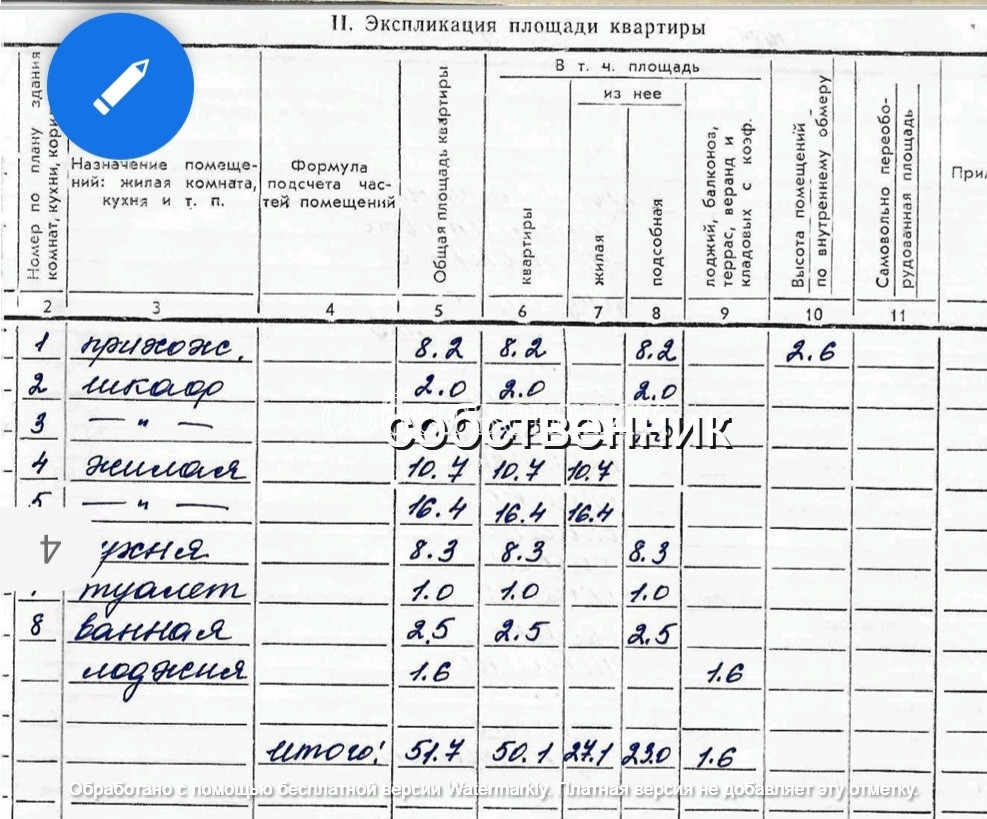 II. Экспликация площади квартиры
Номер по плану здания комнат, кухни,
Назначение помеще-
ний: жилая комната,
кухня и т. п.
Формула
подсчета час-
тей помещений
Общая площадь квартиры
В т. ч. площадь
из нее
квартиры
жилая
подсобная
лоджий, балконов,
террас, веранд и
кладовых с коэф.
Высота помещений
по внутреннему обмеру
Самовольно переобо-
рудованная площадь
2 3 4 5 6 7 8 9 10 11
1 прихож. 8.2 8.2 8.2 2.6
2 шкаф 2.0 2.0 2.0
3 — " —
собственник
4 жилая 10.7 10.7 10.7
5 — " — 16.4 16.4 16.4
4
8.3 8.3 8.3
туалет 1.0 1.0 1.0
8 ванная 2.5 2.5 2.5
лоджия 1.6 1.6
итого: 51.7 50.1 27.1 23.0 1.6
Обработано с помощью бесплатной версии Watermarkly. Платная версия не добавляет эту отметку.